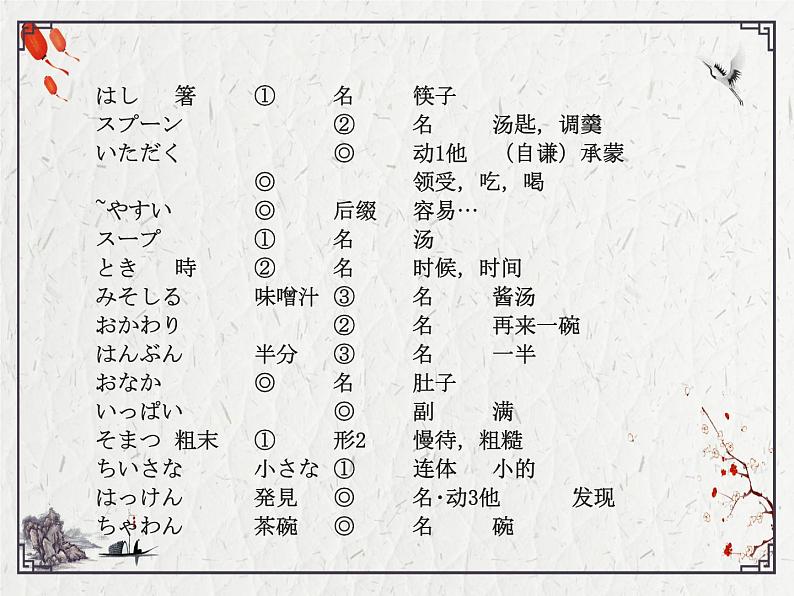 はし 箸 ① 名 筷子
スプーン ② 名 汤匙，调羹
いただく ◎ 动1他 （自谦）承蒙
◎ 领受，吃，喝
~やすい ◎ 后缀 容易…
スープ ① 名 汤
とき 時 ② 名 时候，时间
みそしる 味噌汁 ③ 名 酱汤
おかわり ② 名 再来一碗
はんぶん 半分 ③ 名 一半
おなか ◎ 名 肚子
いっぱい ◎ 副 满
そまつ 粗末 ① 形2 慢待，粗糙
ちいさな 小さな ① 连体 小的
はっけん 発見 ◎ 名·动3他 发现
ちゃわん 茶碗 ◎ 名 碗